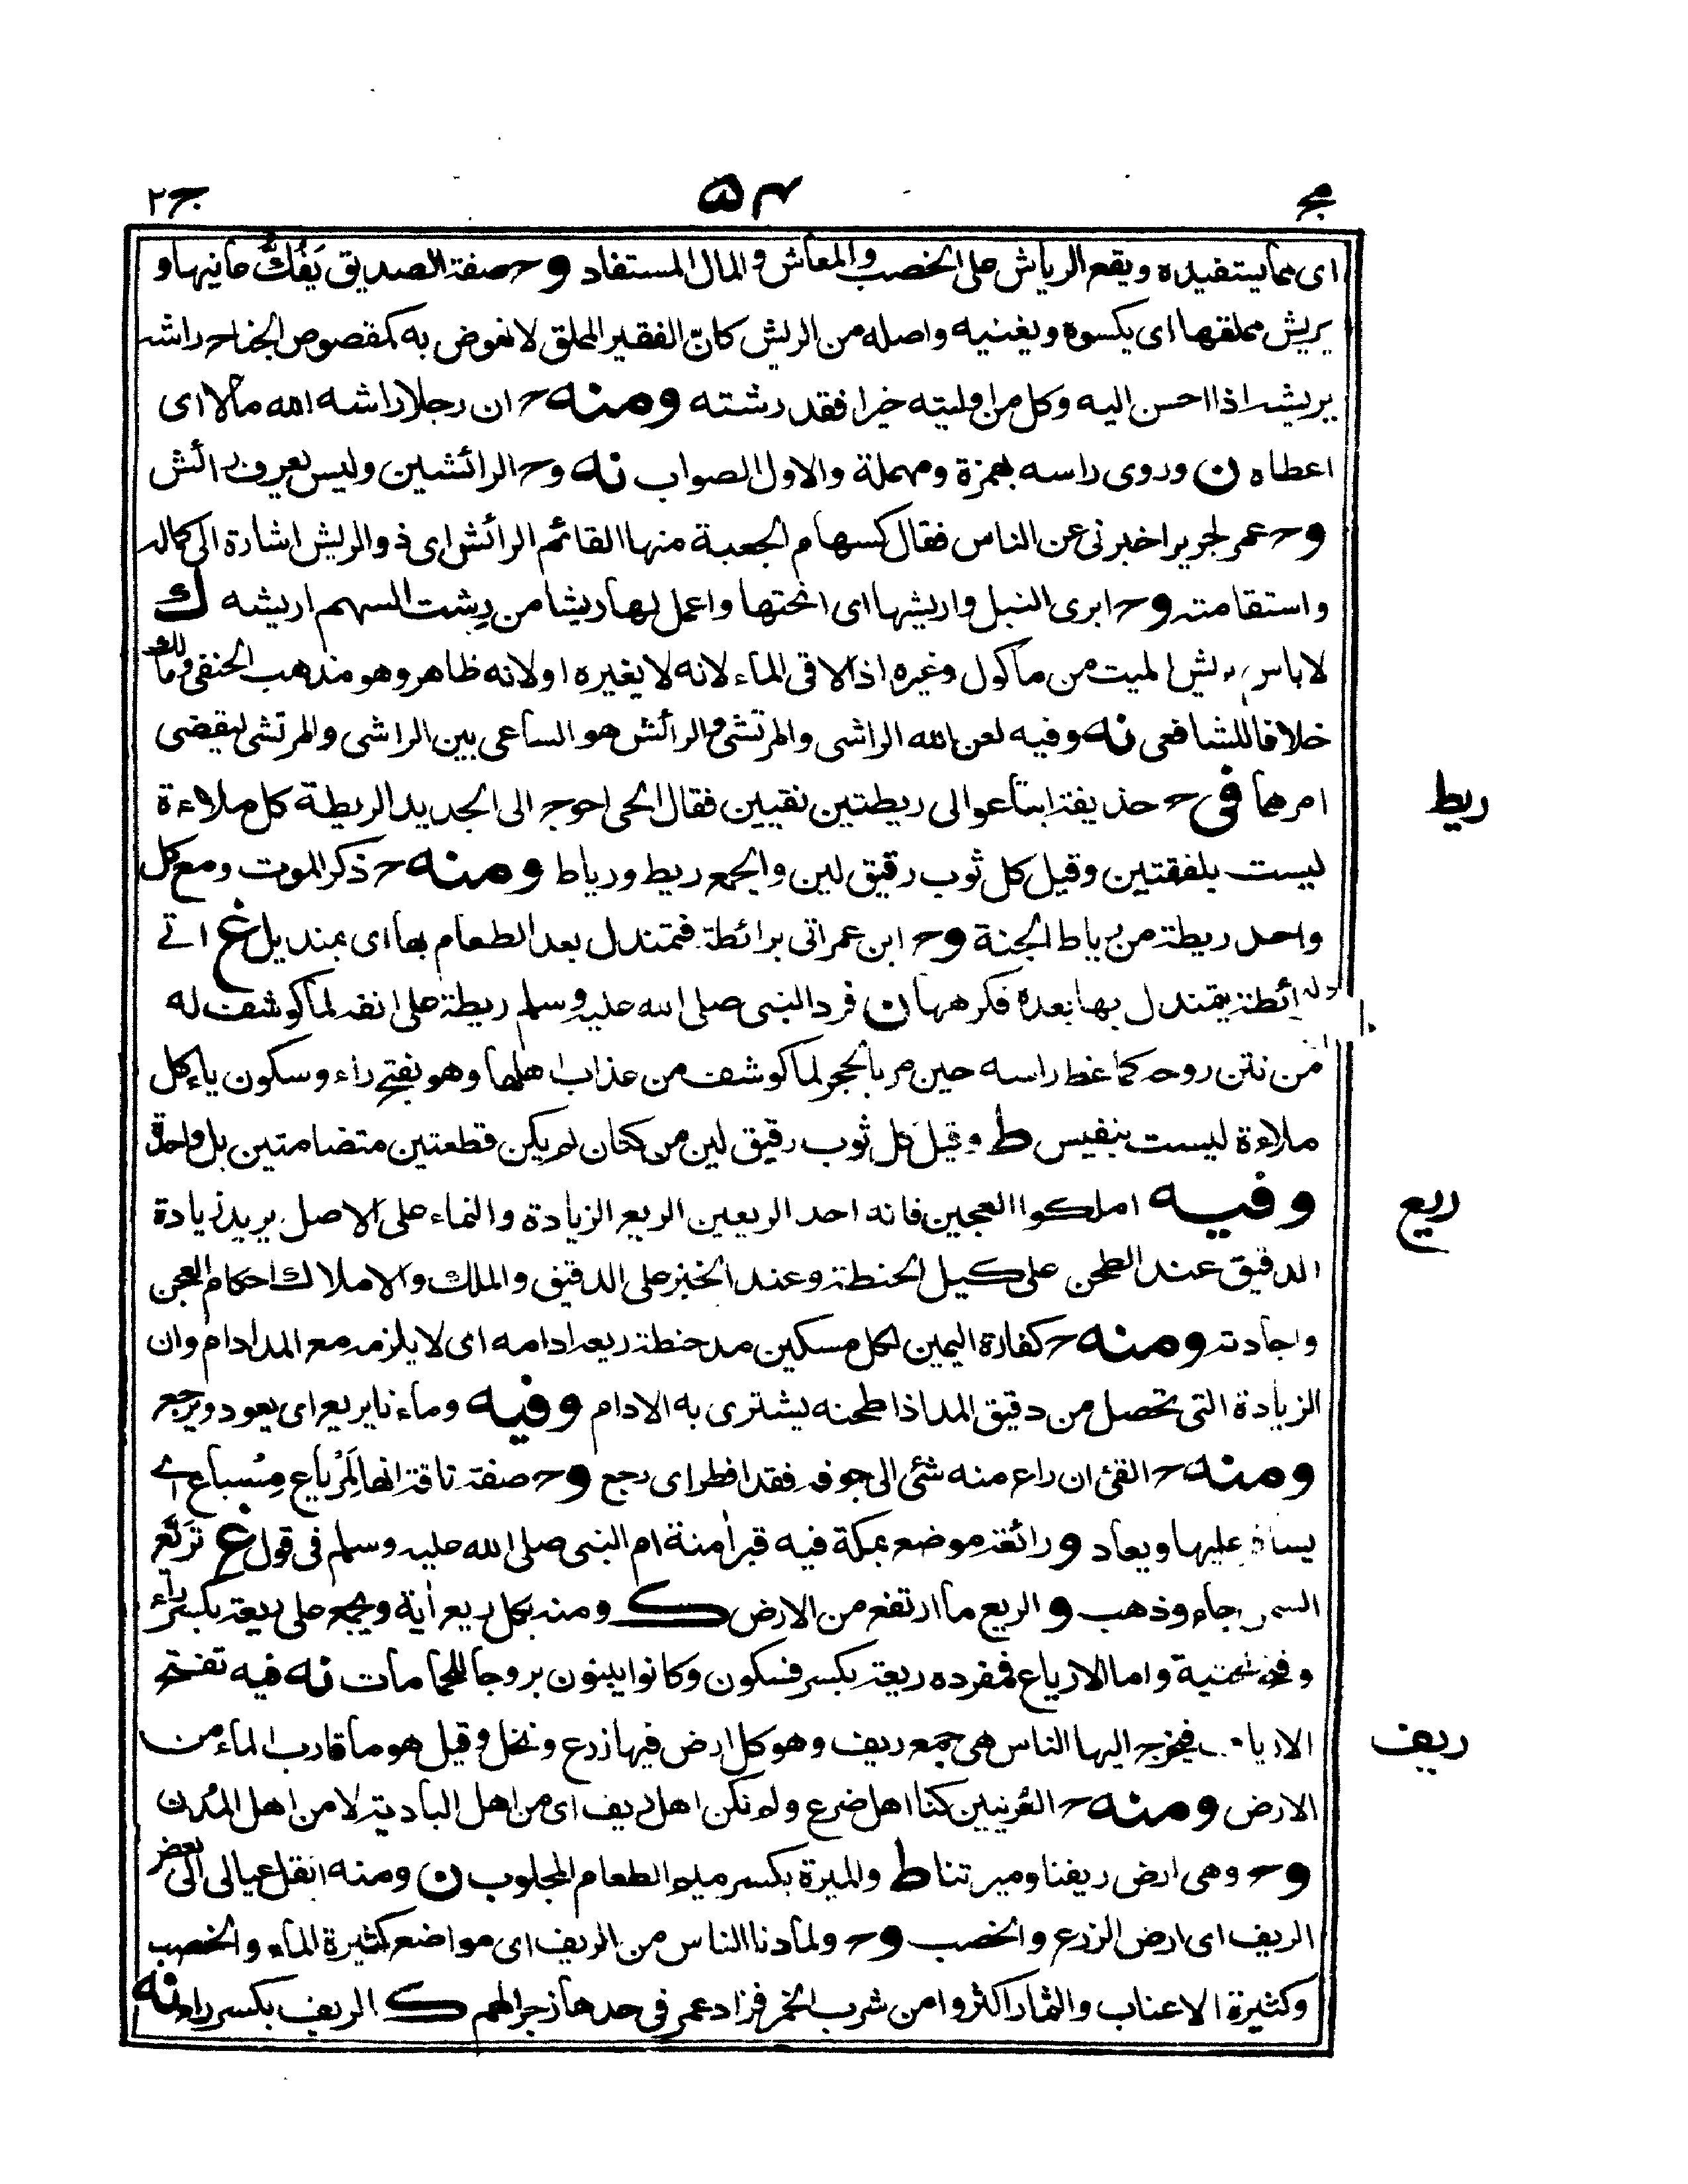 مجـ ۵۴ ج۲
اى مما يستفيده ويقع الرياش على الخصب والمعاش والمال المستفاد وح صفة الصديق يَفُكُّ عانيها و
يريش مملقها اى يكسوه ويغنيه واصله من الريش كانّ الفقير المملق لا نهوض به كمقصوص الجناح راشه
يريشه اذا احسن اليه وكل من اوليته خيرا فقد رشته ومنه ح ان رجلا راشه الله مالا اى
اعطاه ن وروى راسه بهمزة ومهملة والاول الصواب نه وح الرائشين وليس يعرف رائش
وح عمر لجرير اخبرنى عن الناس فقال كسهام الجعبة منها القائم الرائش اى ذو الريش اشارة الى كماله
واستقامته وح ابرى النبل واريشها اى انحتها واعمل لها ريشا من رِشت السهم اريشه ك
لا باس بريش الميت من ماكول وغيره اذا لاقى الماء لانه لا يغيره او لانه ظاهر وهو مذهب الحنفى ومالك
خلافا للشافعى نه وفيه لعن الله الراشى والمرتشى والرائش هو الساعى بين الراشى والمرتشى ليقضى
امرهما فى ح حذيفة ابتاعوا لى ريطتين نقيين فقال الحى احوج الى الجديد الريطة كل ملاءة
ريط
ليست بلفقتين وقيل كل ثوب رقيق لين والجمع ريط ورياط ومنه ح ذكر الموت ومع كل
واحد ريطة من رياط الجنة وح ابن عمر اتى برائطة فتمندل بعد الطعام بها اى بمنديل غ اتى
رائطة يتمندل بها بعده فكرهها ن فرد النبى صلى الله عليه وسلم ريطة على انفه لما كوشف له
من نتن روحه كما غطا راسه حين مر بالحجر لما كوشف من عذاب اهلها وهو بفتح راء وسكون ياء كل
ملاءة ليست بنفيس ط وقيل كل ثوب رقيق لين من كتان لم يكن قطعتين متضامتين بل واحدة
وفيه املكوا العجين فانه احد الريعين الريع الزيادة والنماء على الاصل يريد زيادة
ريع
الدقيق عند الطحن على كيل الحنطة وعند الخبز على الدقيق والملك والاملاك احكام العجن
واجادته ومنه ح كفارة اليمين لكل مسكين مد حنطة ريعه ادامه اى لا يلزمه مع المد ادام وان
الزيادة التى تحصل من دقيق المد اذا طحنه يشترى به الادام وفيه وماءنا يريع اى يعود ويرجع
ومنه ح القئ ان راع منه شئى الى جوفه فقد افطر اى رجع وح صفة ناقة انها لَمِرْياع مِسْياع اے
يسافر عليها ويعاد ورائعة موضع بمكة فيه قبر اٰمنة ام النبى صلى الله عليه وسلم فى قول غ تَرَيَّع
السمن جاء وذهب والريع ما ارتفع من الارض ك ومنه بكل ريع اٰية ويجمع على ريعة بكسر راء
وفتح تحتية واما الارياع فمفرده ريعة بكسر فسكون وكانوا يبنون بروجا للحمامات نه فيه تفتح
الارياف فيخرج اليها الناس هى جمع ريف وهو كل ارض فيها زرع ونخل وقيل هو ما قارب الماء من
ريف
الارض ومنه ح العُرنيين كنا اهل ضرع ولم نكن اهل ريف اى من اهل البادية لا من اهل المُدن
وح وهى ارض ريفنا وميرتنا ط والميرة بكسر ميم الطعام المجلوب ن ومنه انقل عيالى الى بعض
الريف اى ارض الزرع والخصب وح ولما دنا الناس من الريف اى مواضع كثيرة الماء والخصب
وكثيرة الاعناب والثمار اكثروا من شرب الخمر فزاد عمر فى حدها زجرا لهم ك الريف بكسر راء نه